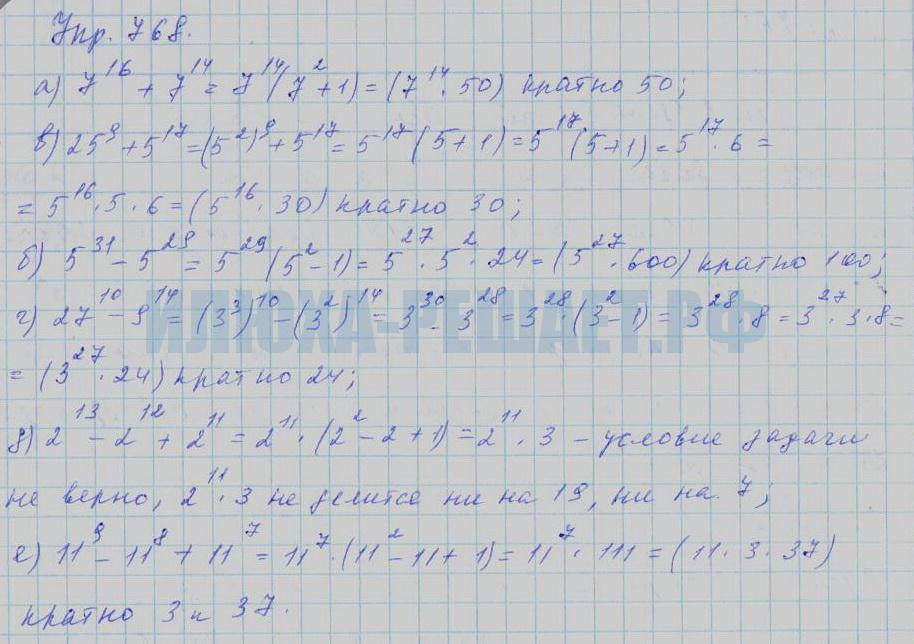 Упр. 768.
а) 7^16 + 7^14 = 7^14 (7^2 + 1) = (7^14 · 50) кратно 50;
в) 25^9 + 5^17 = (5^2)^9 + 5^17 = 5^17 (5 + 1) = 5^17 (5 + 1) = 5^17 · 6 =
= 5^16 · 5 · 6 = (5^16 · 30) кратно 30;
б) 5^31 - 5^29 = 5^29 (5^2 - 1) = 5^27 · 5^2 · 24 = (5^27 · 600) кратно 100;
г) 27^10 - 9^14 = (3^3)^10 - (3^2)^14 = 3^30 - 3^28 = 3^28 · (3^2 - 1) = 3^28 · 8 = 3^27 · 3 · 8 =
= (3^27 · 24) кратно 24;
д) 2^13 - 2^12 + 2^11 = 2^11 · (2^2 - 2 + 1) = 2^11 · 3 – условие задачи
не верно, 2^11 · 3 не делится ни на 19, ни на 7;
е) 11^9 - 11^8 + 11^7 = 11^7 · (11^2 - 11 + 1) = 11^7 · 111 = (11 · 3 · 37)
кратно 3 и 37.
ИЛЮХА-РЕШАЕТ.РФ